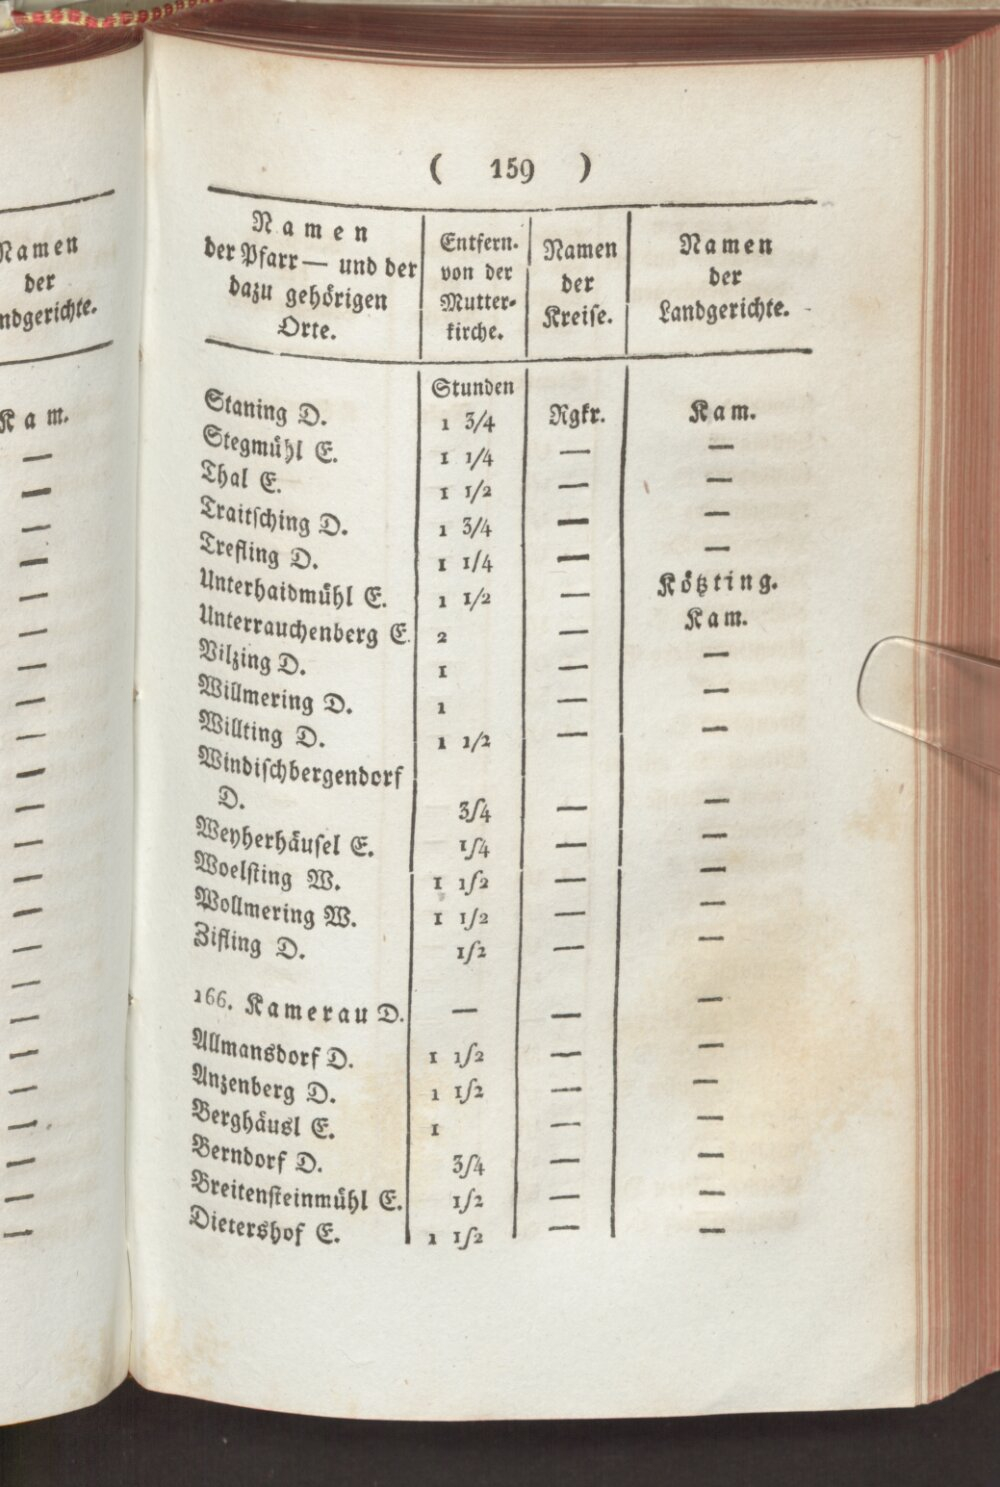 Namen
der
ndgerichte.
Kam.
—
—
—
—
—
—
—
—
—
—
—
—
—
—
—
—
—
—
—
—
—
—
—
—
( 159 )
Namen
der Pfarr— und der
dazu gehörigen
Orte.
Entfern.
von der
Mutter-
kirche.
Namen
der
Kreise.
Namen
der
Landgerichte.
Stunden
Staning D. 1 3/4 Rgkr. Kam.
Stegmühl E. 1 1/4 — —
Thal E. 1 1/2 — —
Traitsching D. 1 3/4 — —
Trefling D. 1 1/4 — —
Unterhaidmühl E. 1 1/2 — Kötzting.
Unterrauchenberg E. 2 — Kam.
Vilzing D. 1 — —
Willmering D. 1 — —
Willting D. 1 1/2 — —
Windischbergendorf
D. 3/4 — —
Weyherhäusel E. 1/4 — —
Woelsting W. 1 1/2 — —
Wollmering W. 1 1/2 — —
Zifling D. 1/2 — —
166. Kamerau D. — — —
Allmansdorf D. 1 1/2 — —
Anzenberg D. 1 1/2 — —
Berghäusl E. 1 — —
Berndorf D. 3/4 — —
Breitensteinmühl E. 1/2 — —
Dietershof E. 1 1/2 — —